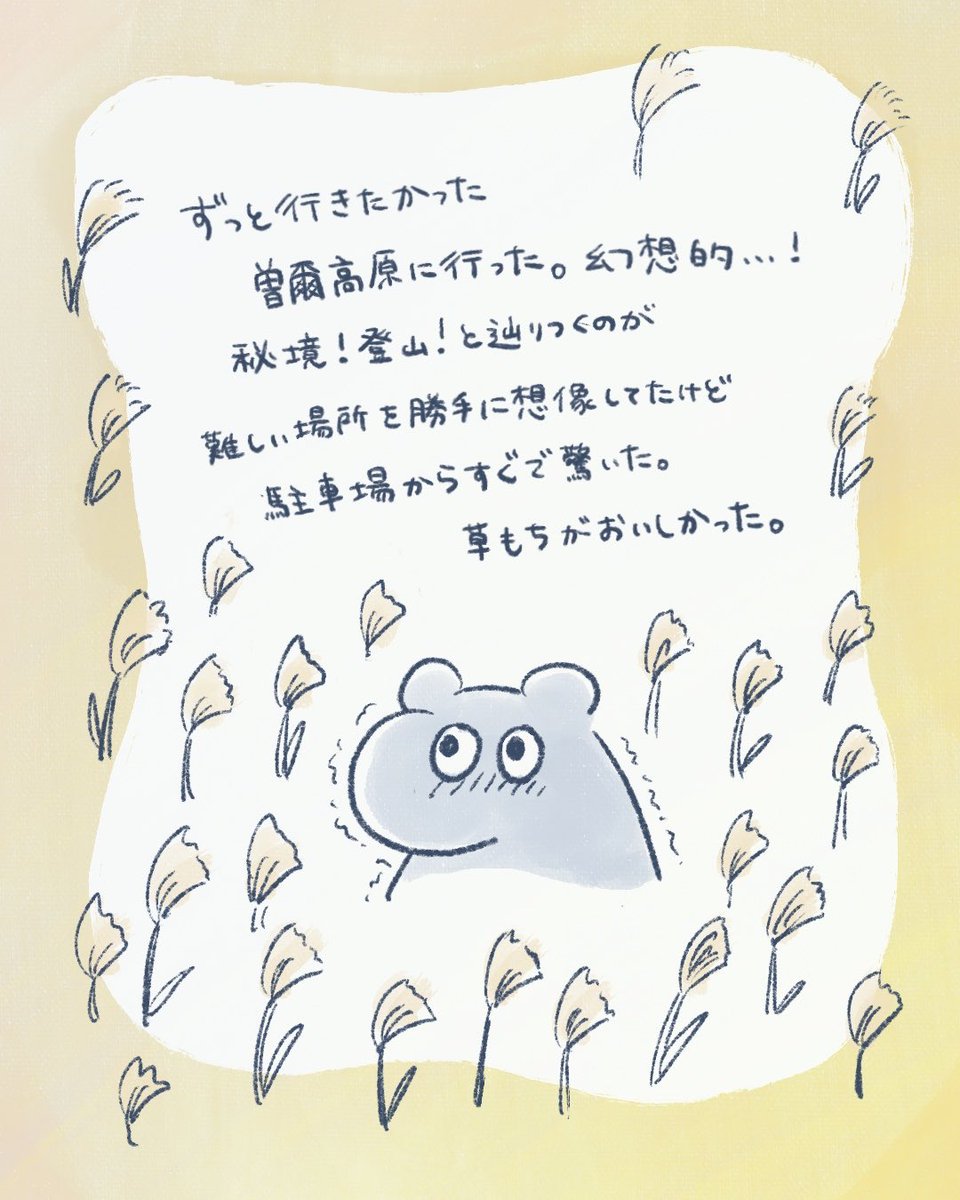 ずっと行きたかった
曽爾高原に行った。幻想的…!
秘境!登山!と辿りつくのが
難しい場所を勝手に想像してたけど
駐車場からすぐで驚いた。
草もちがおいしかった。